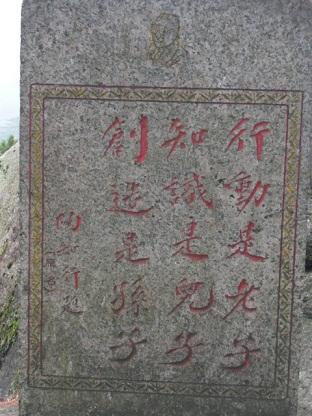 行動是老子
知識是兒子
創造是孫子
陶知行題